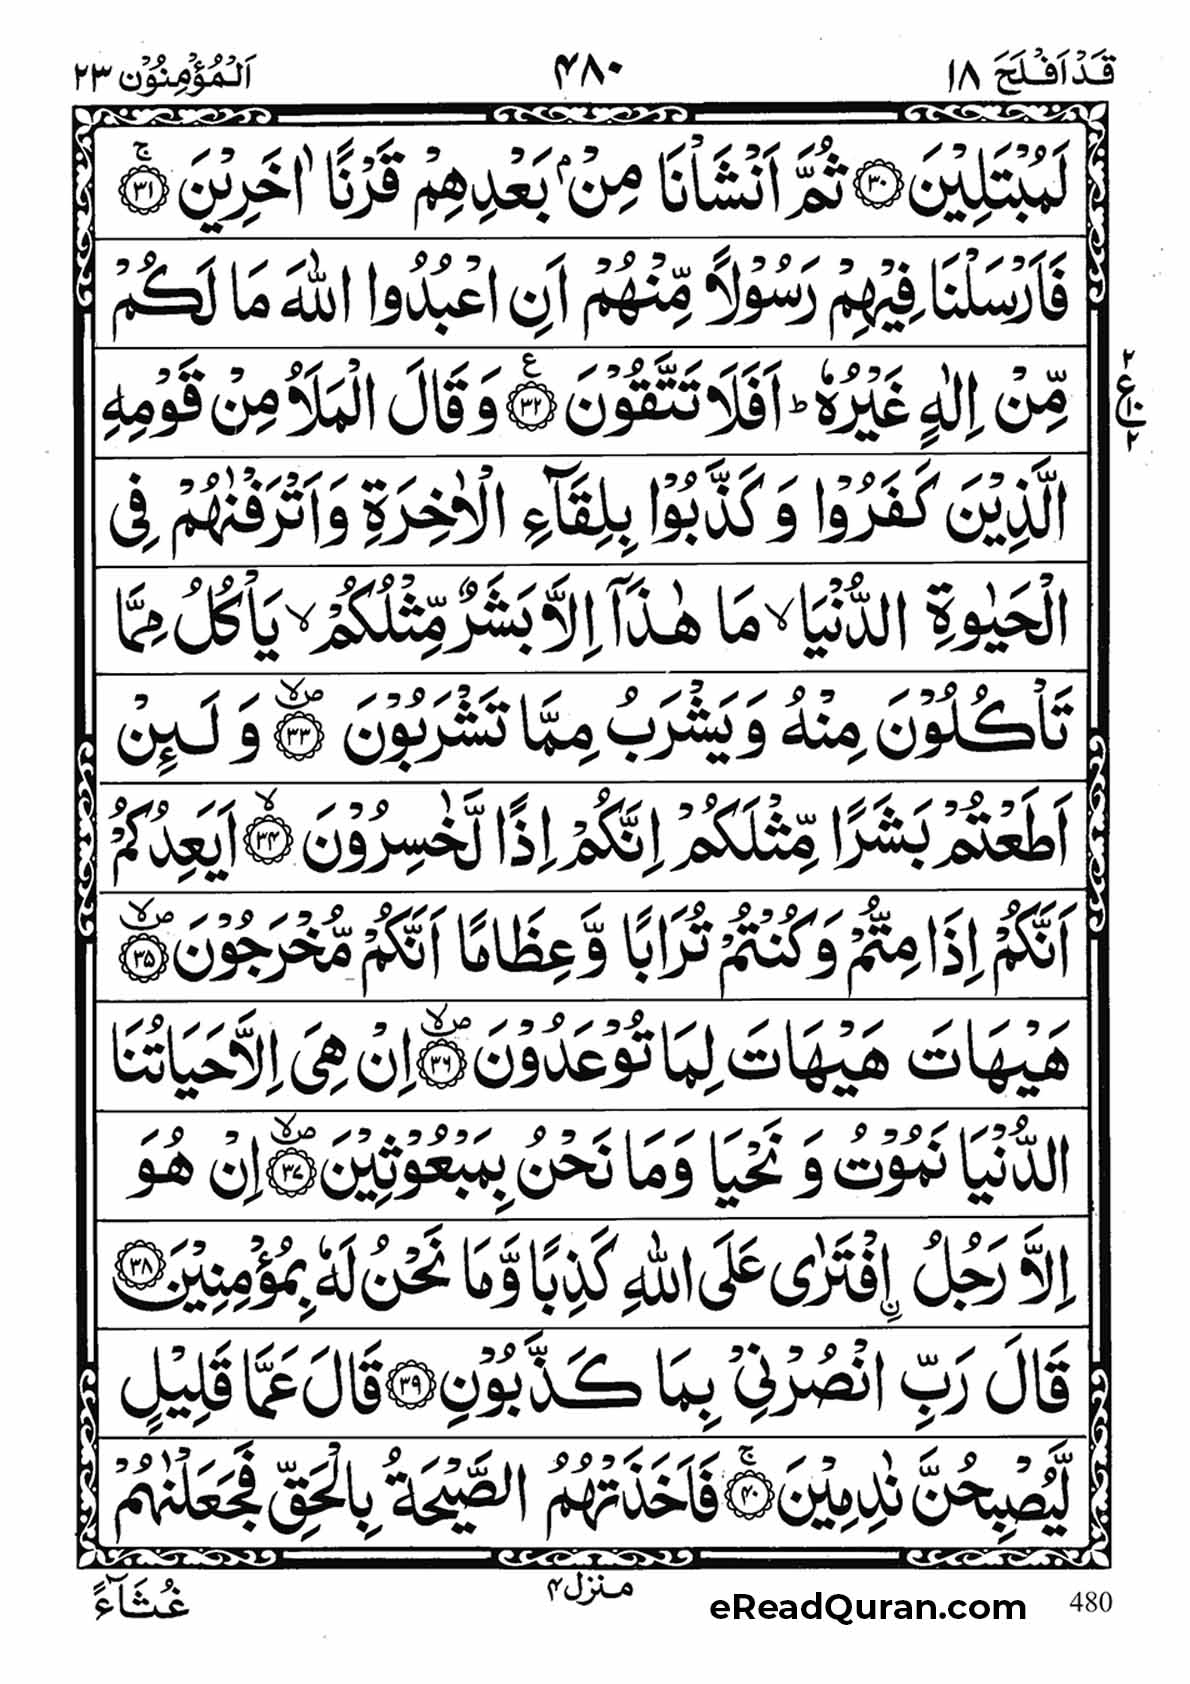 قَدْ اَفْلَحَ ١٨ ۴۸۰ اَلْمُؤْمِنُوْن ٢٣
لَمُبْتَلِيْنَ ﴿۳۰﴾ ثُمَّ اَنْشَاْنَا مِنْۢ بَعْدِهِمْ قَرْنًا اٰخَرِيْنَ ۚ﴿۳۱﴾
فَاَرْسَلْنَا فِيْهِمْ رَسُوْلًا مِّنْهُمْ اَنِ اعْبُدُوا اللّٰهَ مَا لَكُمْ
مِّنْ اِلٰهٍ غَيْرُهٗ ؕ اَفَلَا تَتَّقُوْنَ ﴿۳۲﴾ ع وَ قَالَ الْمَلَاُ مِنْ قَوْمِهِ
٢ ع ١٠ ٢
الَّذِيْنَ كَفَرُوْا وَ كَذَّبُوْا بِلِقَآءِ الْاٰخِرَةِ وَاَتْرَفْنٰهُمْ فِى
الْحَيٰوةِ الدُّنْيَا ۙ مَا هٰذَاۤ اِلَّا بَشَرٌ مِّثْلُكُمْ ۙ يَاْكُلُ مِمَّا
تَاْكُلُوْنَ مِنْهُ وَ يَشْرَبُ مِمَّا تَشْرَبُوْنَ ﴿۳۳﴾ صلا وَ لَـئِنْ
اَطَعْتُمْ بَشَرًا مِّثْلَكُمْ اِنَّكُمْ اِذًا لَّخٰسِرُوْنَ ۙ﴿۳۴﴾ اَيَعِدُكُمْ
اَنَّكُمْ اِذَا مِتُّمْ وَ كُنْتُمْ تُرَابًا وَّ عِظَامًا اَنَّكُمْ مُّخْرَجُوْنَ ﴿۳۵﴾ صلا
هَيْهَاتَ هَيْهَاتَ لِمَا تُوْعَدُوْنَ ﴿۳۶﴾ صلا اِنْ هِىَ اِلَّا حَيَاتُنَا
الدُّنْيَا نَمُوْتُ وَ نَحْيَا وَمَا نَحْنُ بِمَبْعُوْثِيْنَ ﴿۳۷﴾ صلا اِنْ هُوَ
اِلَّا رَجُلُ اۨفْتَرٰى عَلَى اللّٰهِ كَذِبًا وَّمَا نَحْنُ لَهٗ بِمُؤْمِنِيْنَ ﴿۳۸﴾
قَالَ رَبِّ انْصُرْنِىْ بِمَا كَذَّبُوْنِ ﴿۳۹﴾ قَالَ عَمَّا قَلِيْلٍ
لَّيُصْبِحُنَّ نٰدِمِيْنَ ۚ﴿۴۰﴾ فَاَخَذَتْهُمُ الصَّيْحَةُ بِالْحَقِّ فَجَعَلْنٰهُمْ
480 eReadQuran.com منزل ۴ غُثَآءً